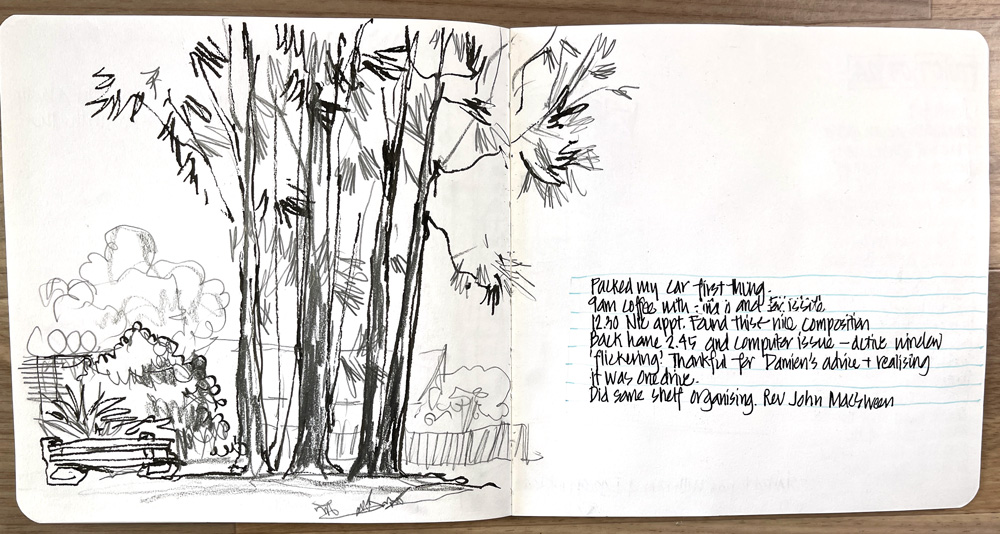 Packed my car first thing.
9am coffee with and
12.30 appt. Found this composition
Back home 2.45 and computer issue - active window
'flickering'. Thankful for Damien's advice + realising
it was onedrive.
Did some shelf organising. Rev John MacSween